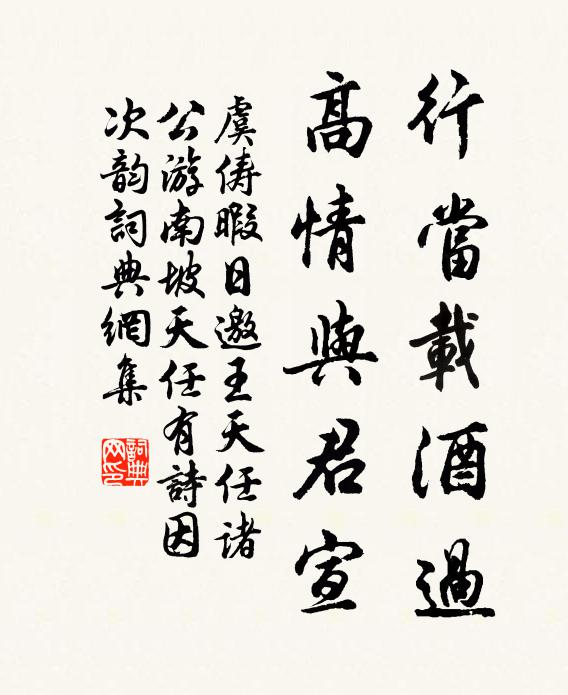 行當載酒過
高情與君宣
虞儔暇日邀王天任諸
公游南坡天任有詩因
次韵詞典網集
詞典网印